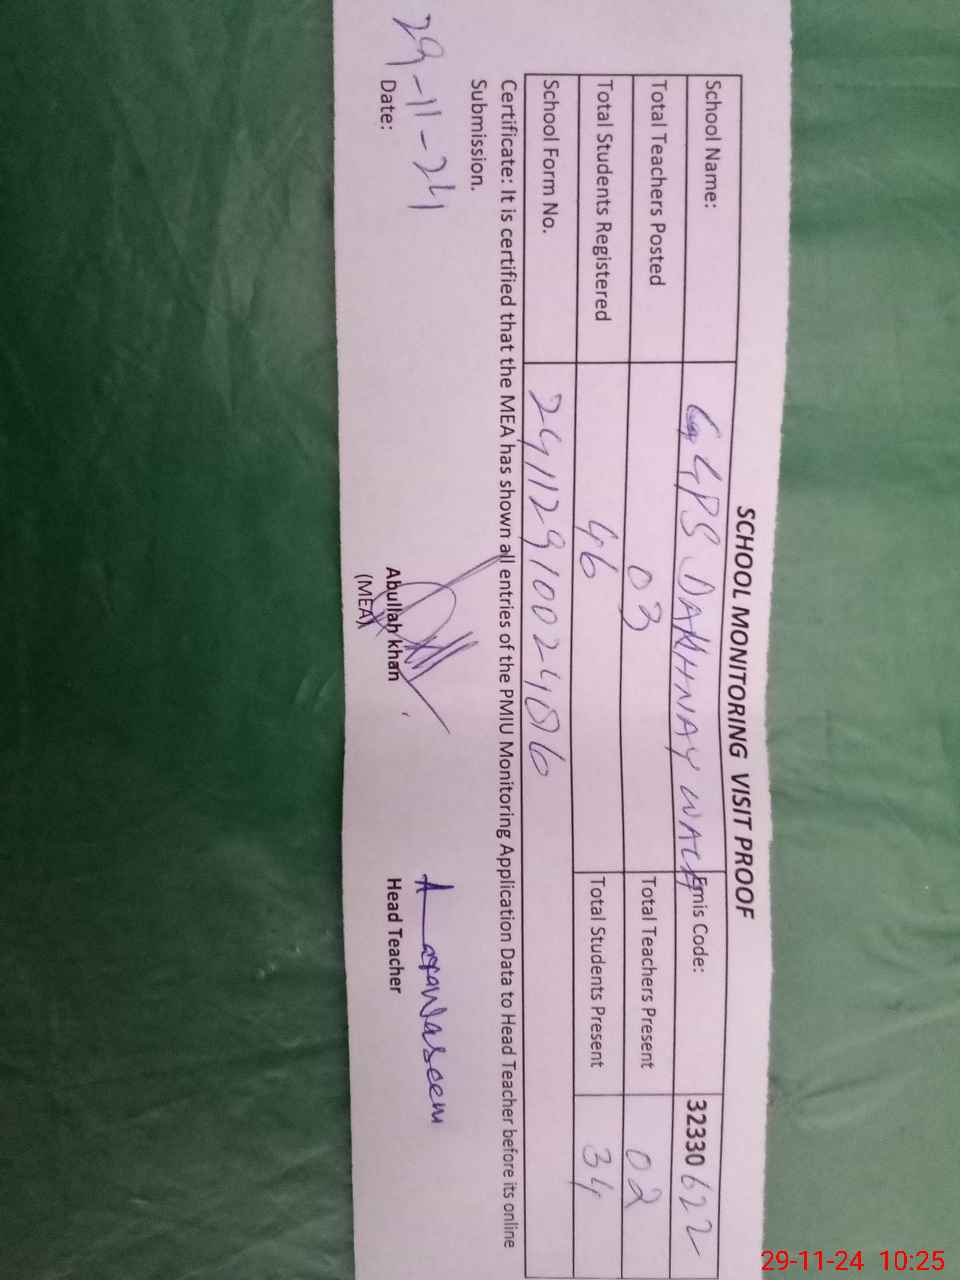 SCHOOL MONITORING VISIT PROOF
School Name: GGPS DAKHNAY WALA Emis Code: 32330622
Total Teachers Posted 03 Total Teachers Present 02
Total Students Registered 46 Total Students Present 34
School Form No. 24112910024816
Certificate: It is certified that the MEA has shown all entries of the PMIU Monitoring Application Data to Head Teacher before its online
Submission.
29-11-24
Date: Abullah khan Head Teacher
(MEA)
29-11-24 10:25